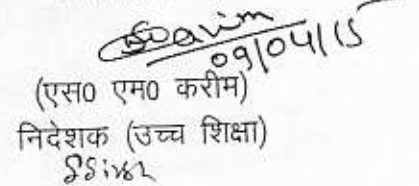 09/04/15
(एस० एम० करीम)
निदेशक (उच्च शिक्षा)